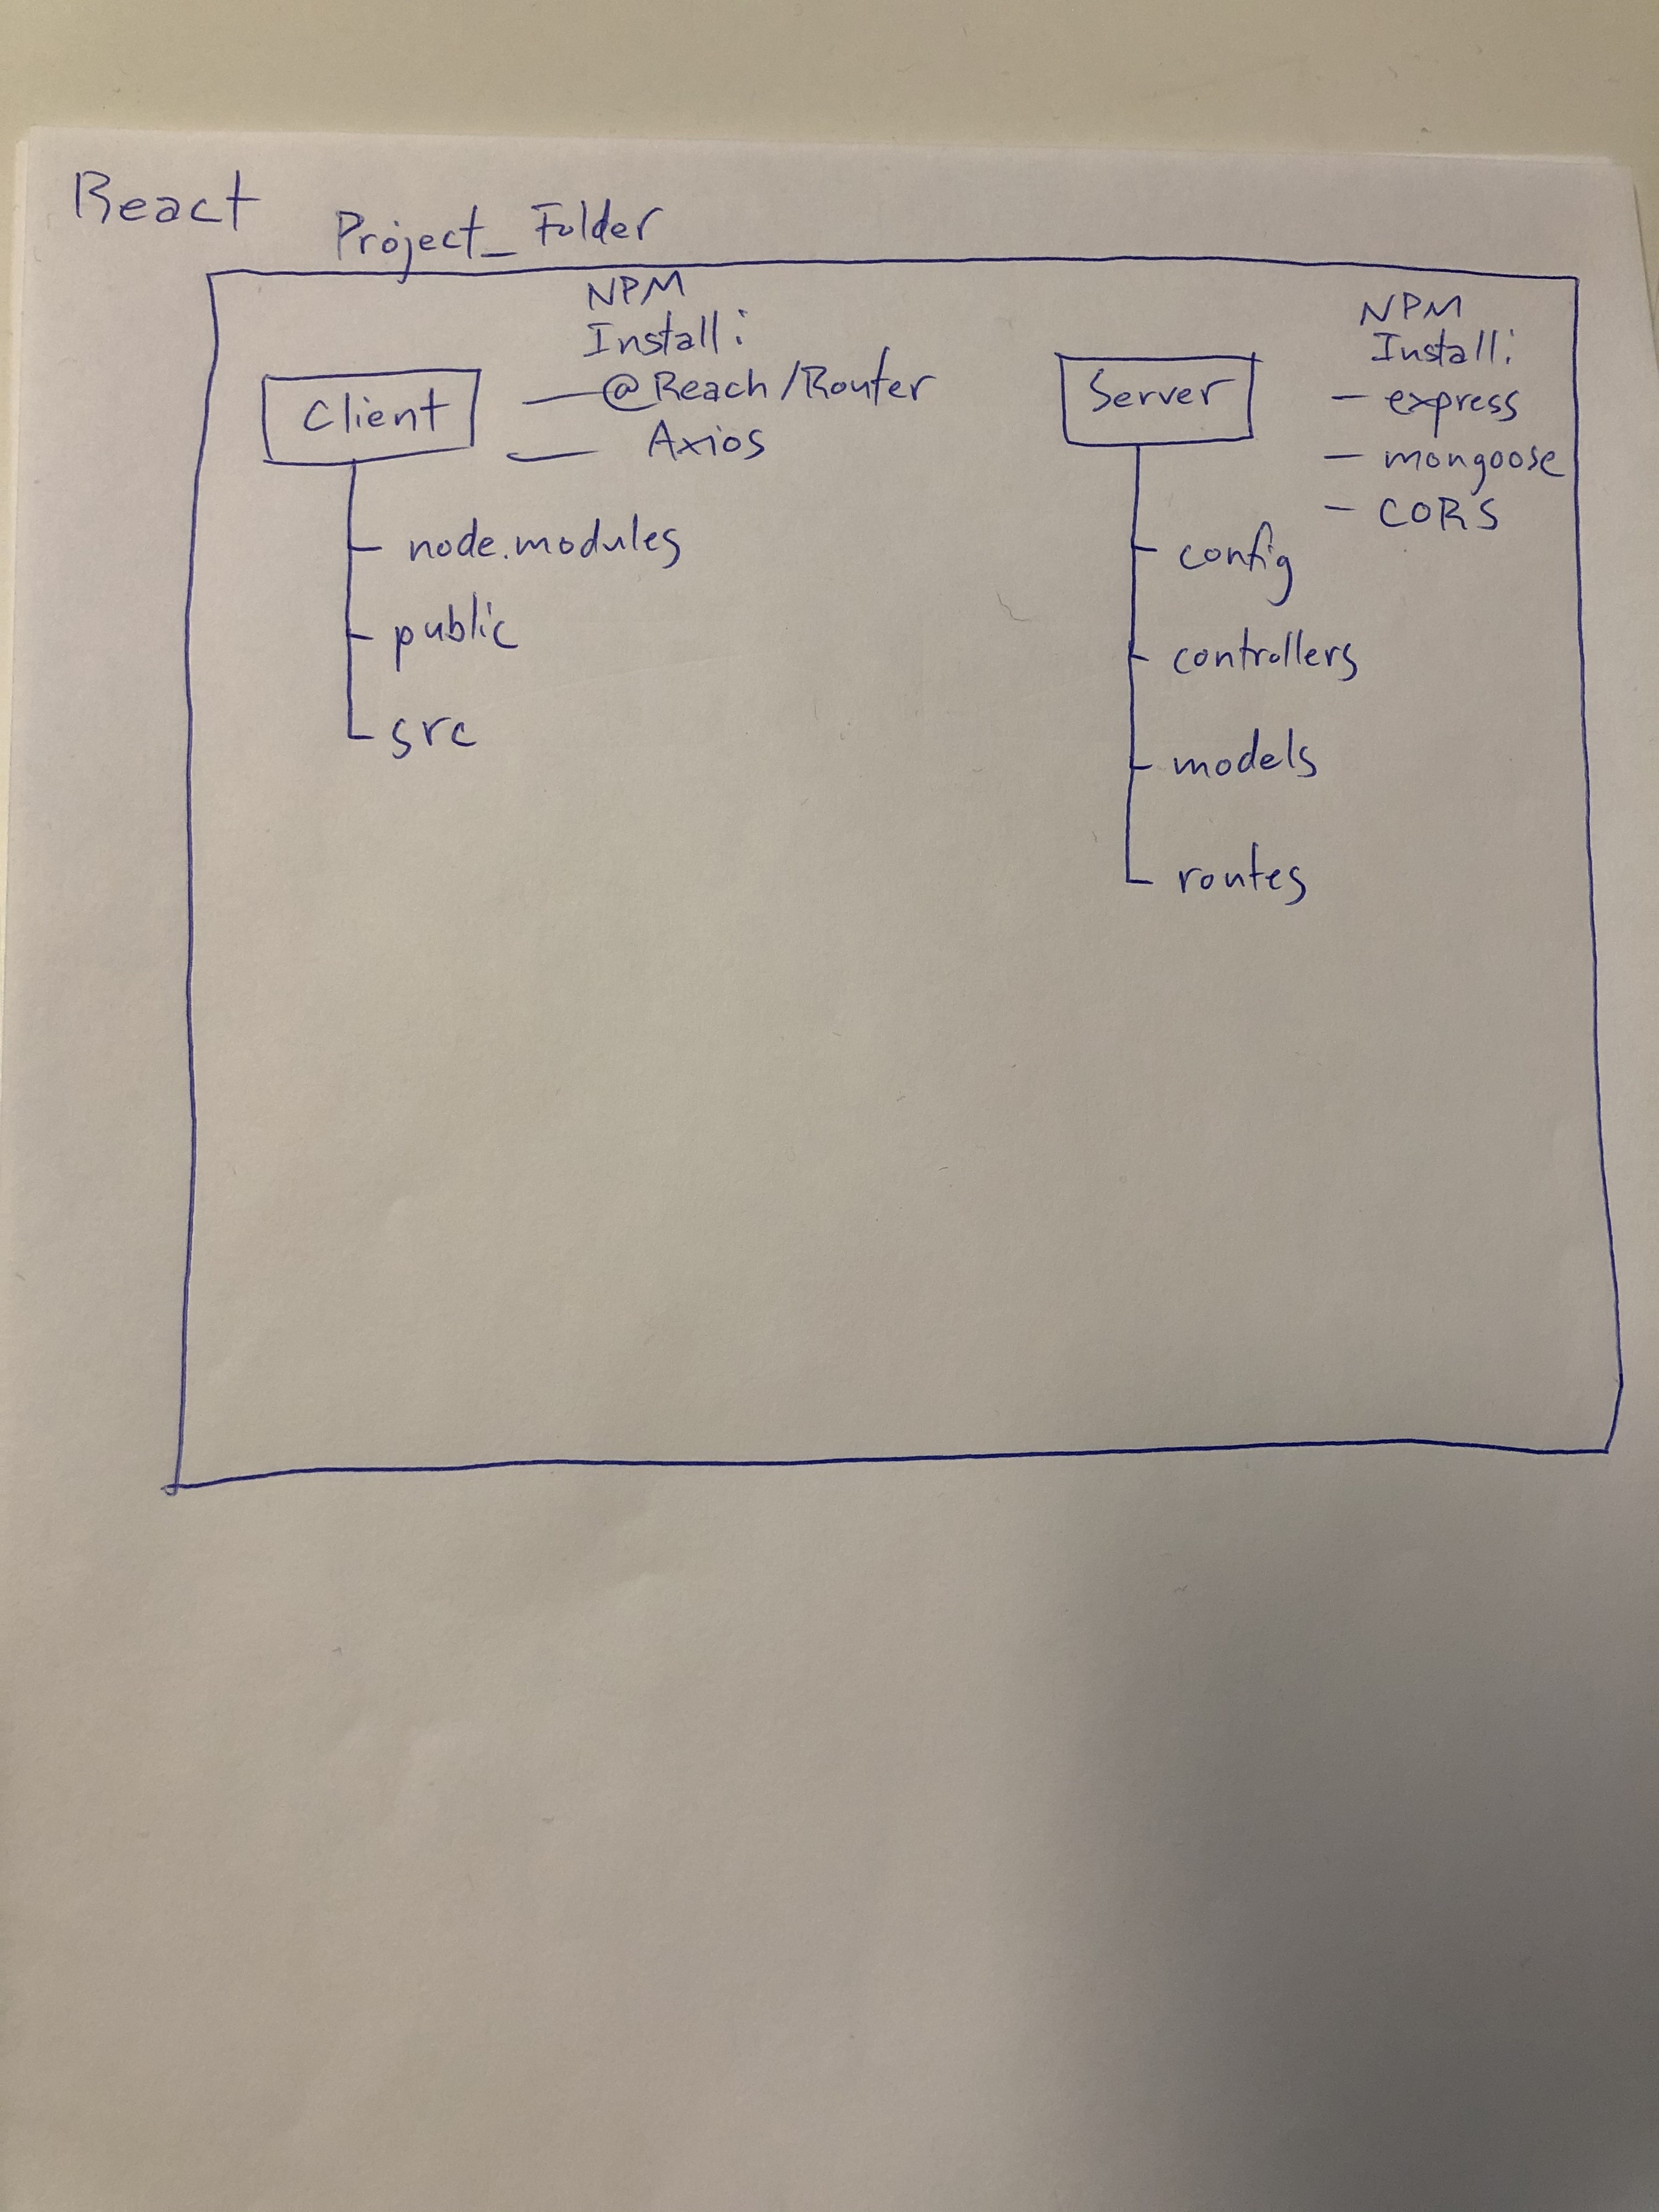 React
Project_Folder
NPM
Install:
Client
— @Reach/Router
— Axios
node.modules
public
src
NPM
Install:
Server
— express
— mongoose
— CORS
config
controllers
models
routes